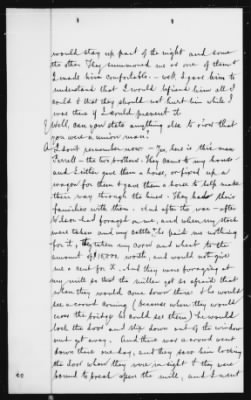 would stay up part of the night and some
the other. They summoned me as one of them &
I made him comfortable. - well I gave him to
understand that I would befriend him all I
could & that they should not hurt him while I
was there if I could prevent it.
Q Well, can you state anything else to show that
you were a union man?
A. I don't remember now - Yes, here is this man
Ferrell - the two brothers. They came to my house
and I either give them a horse, or fixed up a
wagon for them & gave them a horse to help make
their way through the lines. They had their
families with them. And after the war - after
had foraged on me, and when my stock
were taken and my cattle, he paid me nothing
for it, they taken my corn and wheat to the
amount of worth, and would not give
me a cent for it. And they were foraging at
my mill so that the miller got so afraid that
when they would come down there & he would
see a crowd coming (because when they would
cross the bridge he could see them) he would
lock the door and slip down out of the window
and get away. And there was a crowd went
down there one day, and they saw him locking
the door when they were in sight & they were
bound to break open the mill, and I went